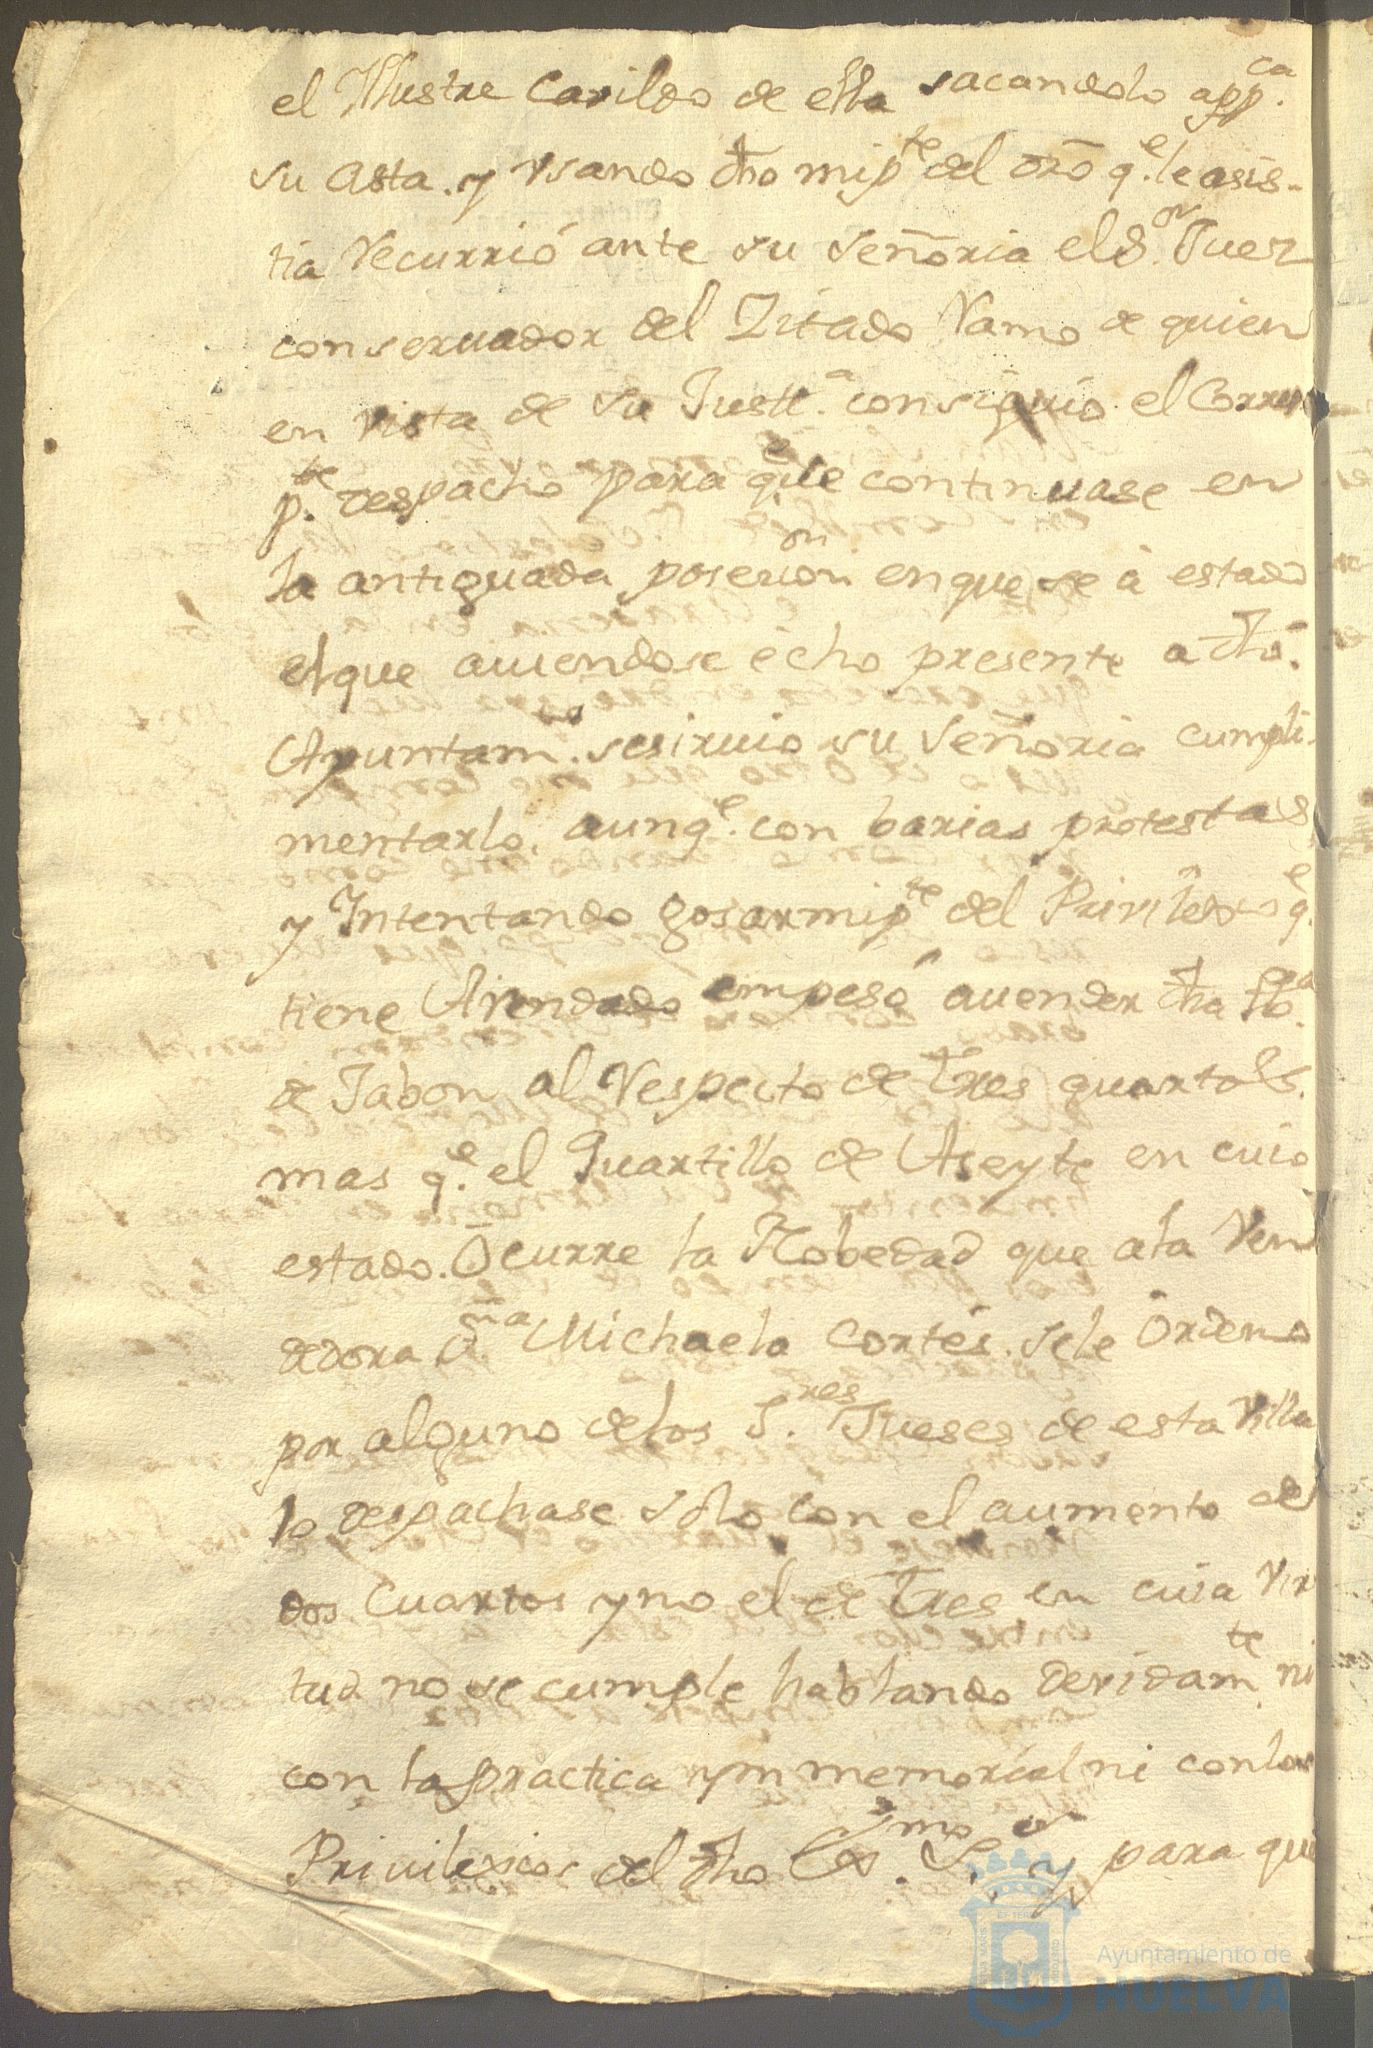 el Yllustre Cavildo de ella sacandolo a pp.ca
su Asta. y Vsando dho mi p.te del dro q.e le asis-
tia Recurrió ante su Señoria el S.or Juez
conseruador del Zitado Ramo de quien
en vista de su Justt.a consiguio el Corres
p.te despacho para q.e le continuase en
la antiguada posecion en que se à estado
el que auiendose echo presente a dho.
Ayuntam.to se siruio su Señoria cumpli-
mentarlo, aunq.e con barias protestas
y Intentando gosar mi p.te del Privilexio q.e
tiene Arrendado empesó a uender dha
de Jabon al Respecto de tres quartos
mas q.e el Quartillo de Aseyte en cuio
estado. Ocurre la Nobedad que a la Ven
dedora D.ña Michaela Cortés. se le Ordeno
por alguno de los S.res Jueses de esta Villa
lo despachase solo con el aumento de
dos Cuartos y no el de Tres en cuia Vir
tud no se cumple hablando devidam.te ni
con la practica ynmemorial ni con los
Privilexios del dho Ex.mo S.or y para que
Ayuntamiento de
HUELVA